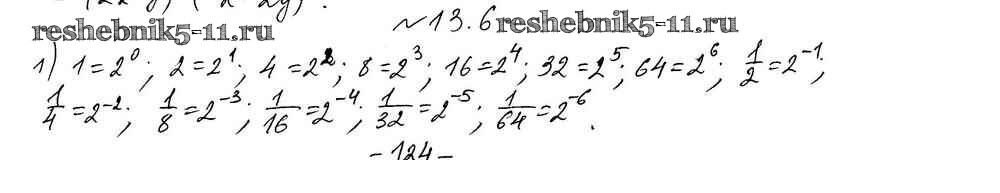 reshebnik5-11.ru
№13.6 reshebnik5-11.ru
1) 1=2⁰; 2=2¹; 4=2²; 8=2³; 16=2⁴; 32=2⁵; 64=2⁶; 1/2=2⁻¹;
1/4=2⁻²; 1/8=2⁻³; 1/16=2⁻⁴; 1/32=2⁻⁵; 1/64=2⁻⁶.
-124-